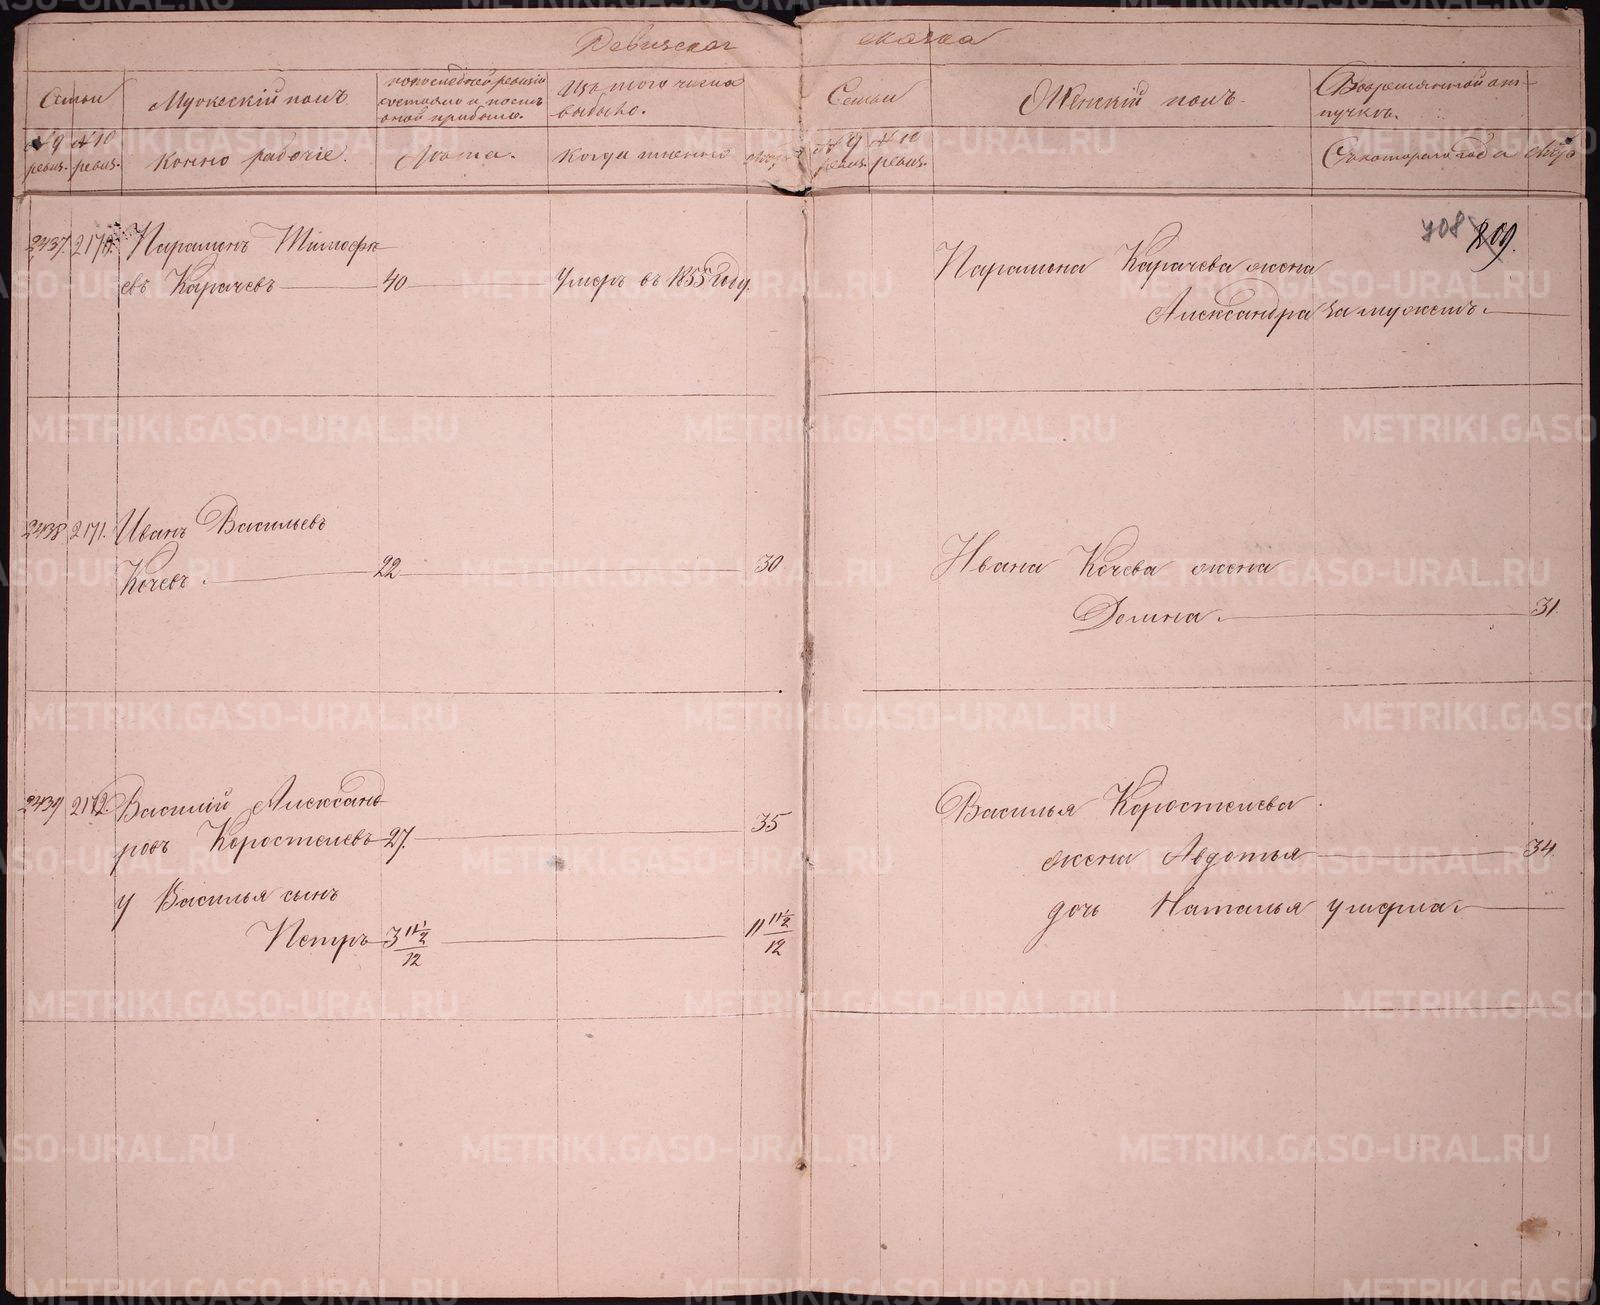 Ревизская сказка
Семьи
Мужескій полъ.
по последней ревизіи
состояло и после
оной прибыло.
Изъ того числа
выбыло.
Семьи
Женскій полъ.
Въ временной от-
лучкѣ.
№ 9 ревиз.
№ 10 ревиз.
Конно рабочіе.
Лѣта.
Когда именно
№ 9 ревиз.
№ 10 ревиз.
Съ котораго года
708 809.
2437. 2170. Парамонъ Тимофе
евъ Карачевъ 40 Умеръ въ 1855 году.
Парамона Карачева жена
Александра замужемъ.
2438 2171. Иванъ Васильевъ
Кочевъ. 22 30
Ивана Кочева жена
Домна. 31.
2439 2172. Василій Александ
ровъ Коростелевъ 27. 35
у Василья сынъ
Петръ 3 11½/12 11 11½/12
Василья Коростелева
жена Авдотья 34
дочь Наталья умерла.
METRIKI.GASO-URAL.RU